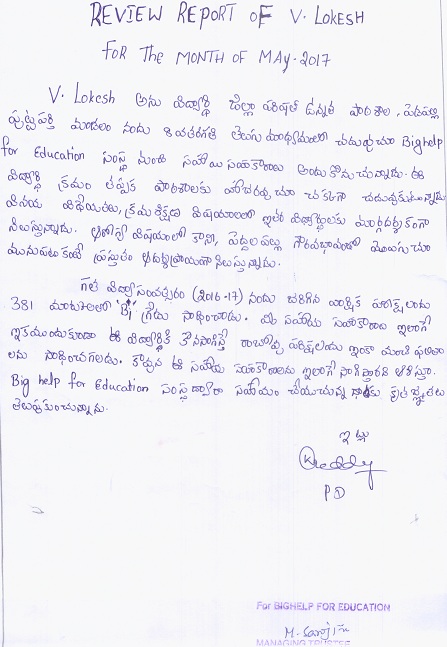 REVIEW REPORT OF V. LOKESH
FOR The MONTH OF MAY-2017
V. Lokesh అను విద్యార్థి జిల్లా పరిషత్ ఉన్నత పాఠశాల, పెడపల్లి
పుట్టపర్తి మండలం నందు 8 వతరగతి తెలుగు మాధ్యమంలో చదువుచూ Bighelp
for Education సంస్థ నుండి సహాయ సహకారాలు అందుకొనుచున్నాడు. ఈ
విద్యార్థి క్రమం తప్పక పాఠశాలకు హాజరవుచూ చక్కగా చదువుకుంటున్నాడు
వినయ విధేయతలు, క్రమశిక్షణ విషయాలలో ఇతర విద్యార్థులకు మార్గదర్శకంగా
నిలుస్తున్నాడు. విషయంలో కానీ, పెద్దలపట్ల గౌరవభావంతో మెలుగుచూ
మునుపటికంటే ప్రస్తుతం ఆదర్శప్రాయంగా నిలుస్తున్నాడు.
గత విద్యాసంవత్సరం (2016-17) నందు జరిగిన వార్షిక పరీక్షలందు
381 మార్కులతో 'B1' గ్రేడు సాధించాడు. మీ సహాయ సహకారాలు ఇలాగే
ఇకముందుకూడా ఈ విద్యార్థికి కొనసాగిస్తే రాబోవు పరీక్షలందు ఇంకా మంచి ఫలితా
లను సాధించగలడు. కావున ఈ సహాయ సహకారాలను ఇలాగే సాగిస్తారని ఆశిస్తూ.
Big help for Education సంస్థ ద్వారా సహాయం చేయుచున్న దాతకు కృతజ్ఞతలు
తెలుపుకుంచున్నాడు.
ఇట్లు
KReddy
PD
For BIGHELP FOR EDUCATION
M. Saroji
MANAGING TRUSTEE